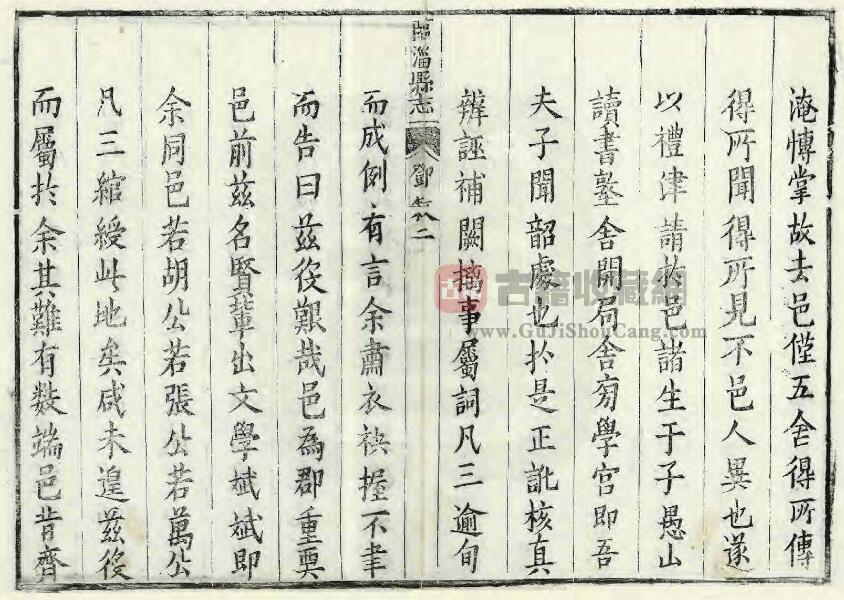 淹慱掌故去邑僅五舍得所傳
得所聞得所見不邑人異也遂
以禮津請扵邑諸生于子愚山
讀書臺舍開局舍旁學宮即吾
夫子聞韶處也扵是正訛核真
辨誣補闕摛事屬詞凡三逾旬
臨淄縣志
鄧敘二
而成例有言余肅衣袂握不聿
而告曰茲役艱哉邑為郡重奧
邑前茲名賢輩出文學斌斌即
余同邑若胡公若張公若萬公
凡三綰綬此地矣咸未遑茲役
而屬扵余其難有數端邑昔齊
古籍收藏網
www.GuJiShouCang.com